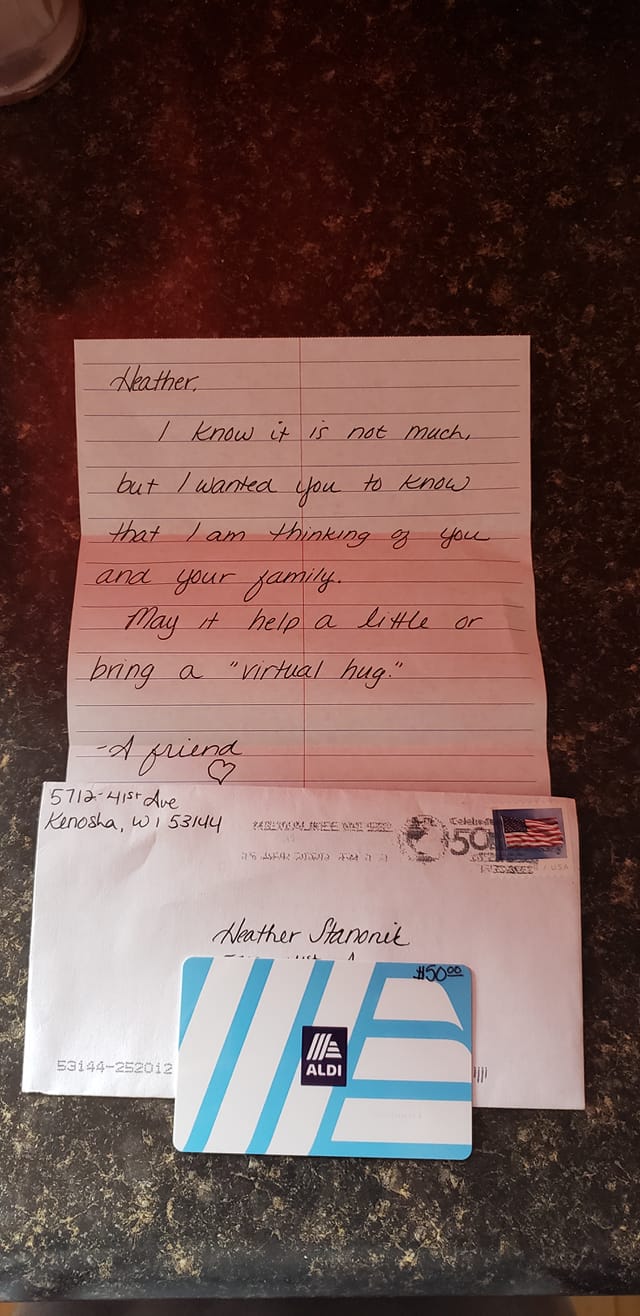 Heather,
I know it is not much,
but I wanted you to know
that I am thinking of you
and your family.
May it help a little or
bring a "virtual hug."
-A friend
5712-41st Ave
Kenosha, WI 53144
MILWAUKEE WI 530
50
USA
Heather Stanonik
$50.00
ALDI
53144-252012